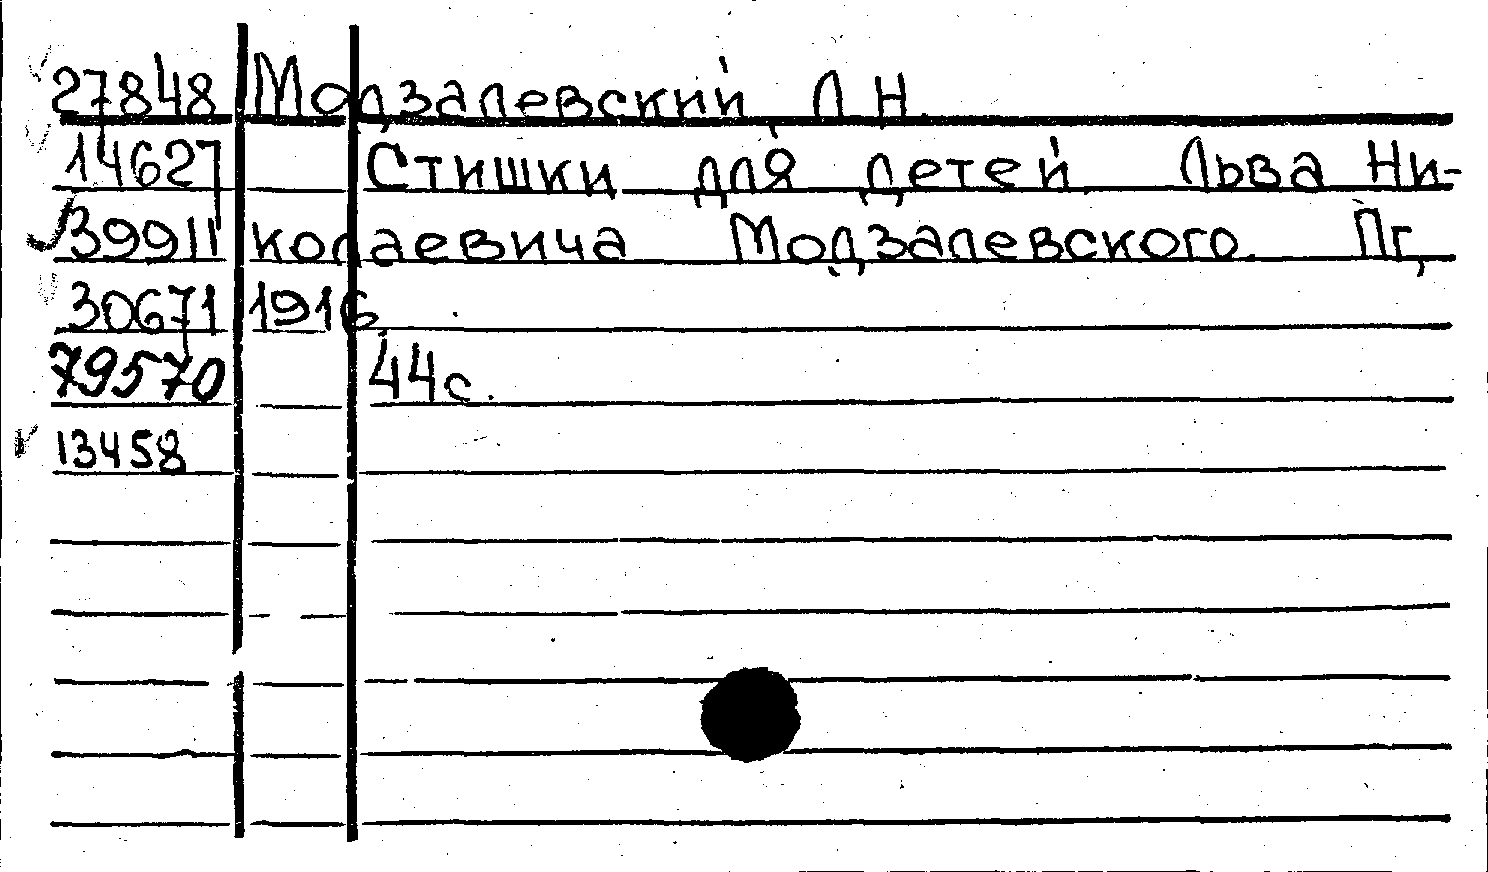 27848 Модзалевский Л Н.
14627 Стишки для детей Льва Ни-
39911 колаевича Модзалевского. Пг,
30671 1916.
79570 44с.
13458